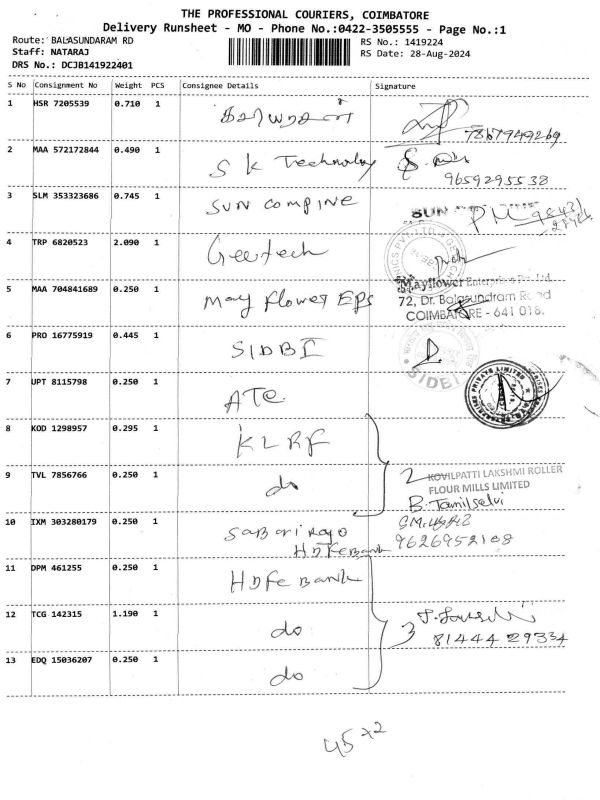 THE PROFESSIONAL COURIERS, COIMBATORE
Delivery Runsheet - MO - Phone No.:0422-3505555 - Page No.:1
Route: BALASUNDARAM RD
RS No.: 1419224
Staff: NATARAJ
RS Date: 28-Aug-2024
DRS No.: DCJB141922401
S No Consignment No Weight PCS Consignee Details Signature
1 HSR 7205539 0.710 1
7867949269
2 MAA 572172844 0.490 1 S K Technology
9659295538
3 SLM 353323686 0.745 1 SUN COMPINE SUN PM
4 TRP 6820523 2.090 1 Geetech
5 MAA 704841689 0.250 1 May flower EPS
Mayflower Enterprises Pvt. Ltd.
72, Dr. Balasundram Road
COIMBATORE - 641 018.
6 PRO 16775919 0.445 1 SIDBI
SIDBI
7 UPT 8115798 0.250 1 ATC
PRIVATE LIMITED
8 KOD 1298957 0.295 1 KLRF
9 TVL 7856766 0.250 1 do 2
KOVILPATTI LAKSHMI ROLLER
FLOUR MILLS LIMITED
B. Tamilselvi
10 IXM 303280179 0.250 1
HDFC Bank 9626952108
11 DPM 461255 0.250 1 HDFC Bank
12 TCG 142315 1.190 1 do 3
81444 29334
13 EDQ 15036207 0.250 1 do
45+2